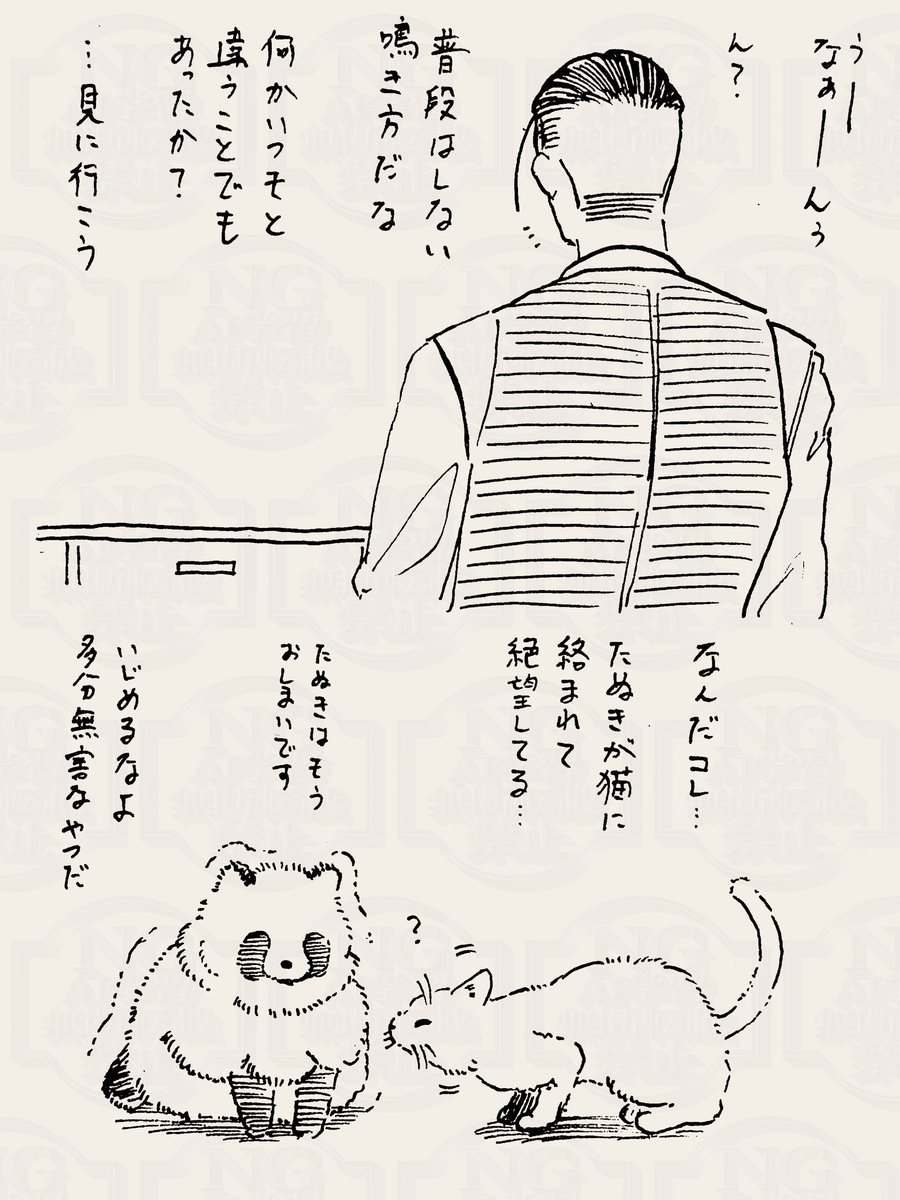 うー
なぁーんぅ
ん?
普段はしない
鳴き方だな
何かいつもと
違うことでも
あったか?
…見に行こう
なんだコレ…
たぬきが猫に
絡まれて
絶望してる…
たぬきはもう
おしまいです
いじめるなよ
多分無害なやつだ
?